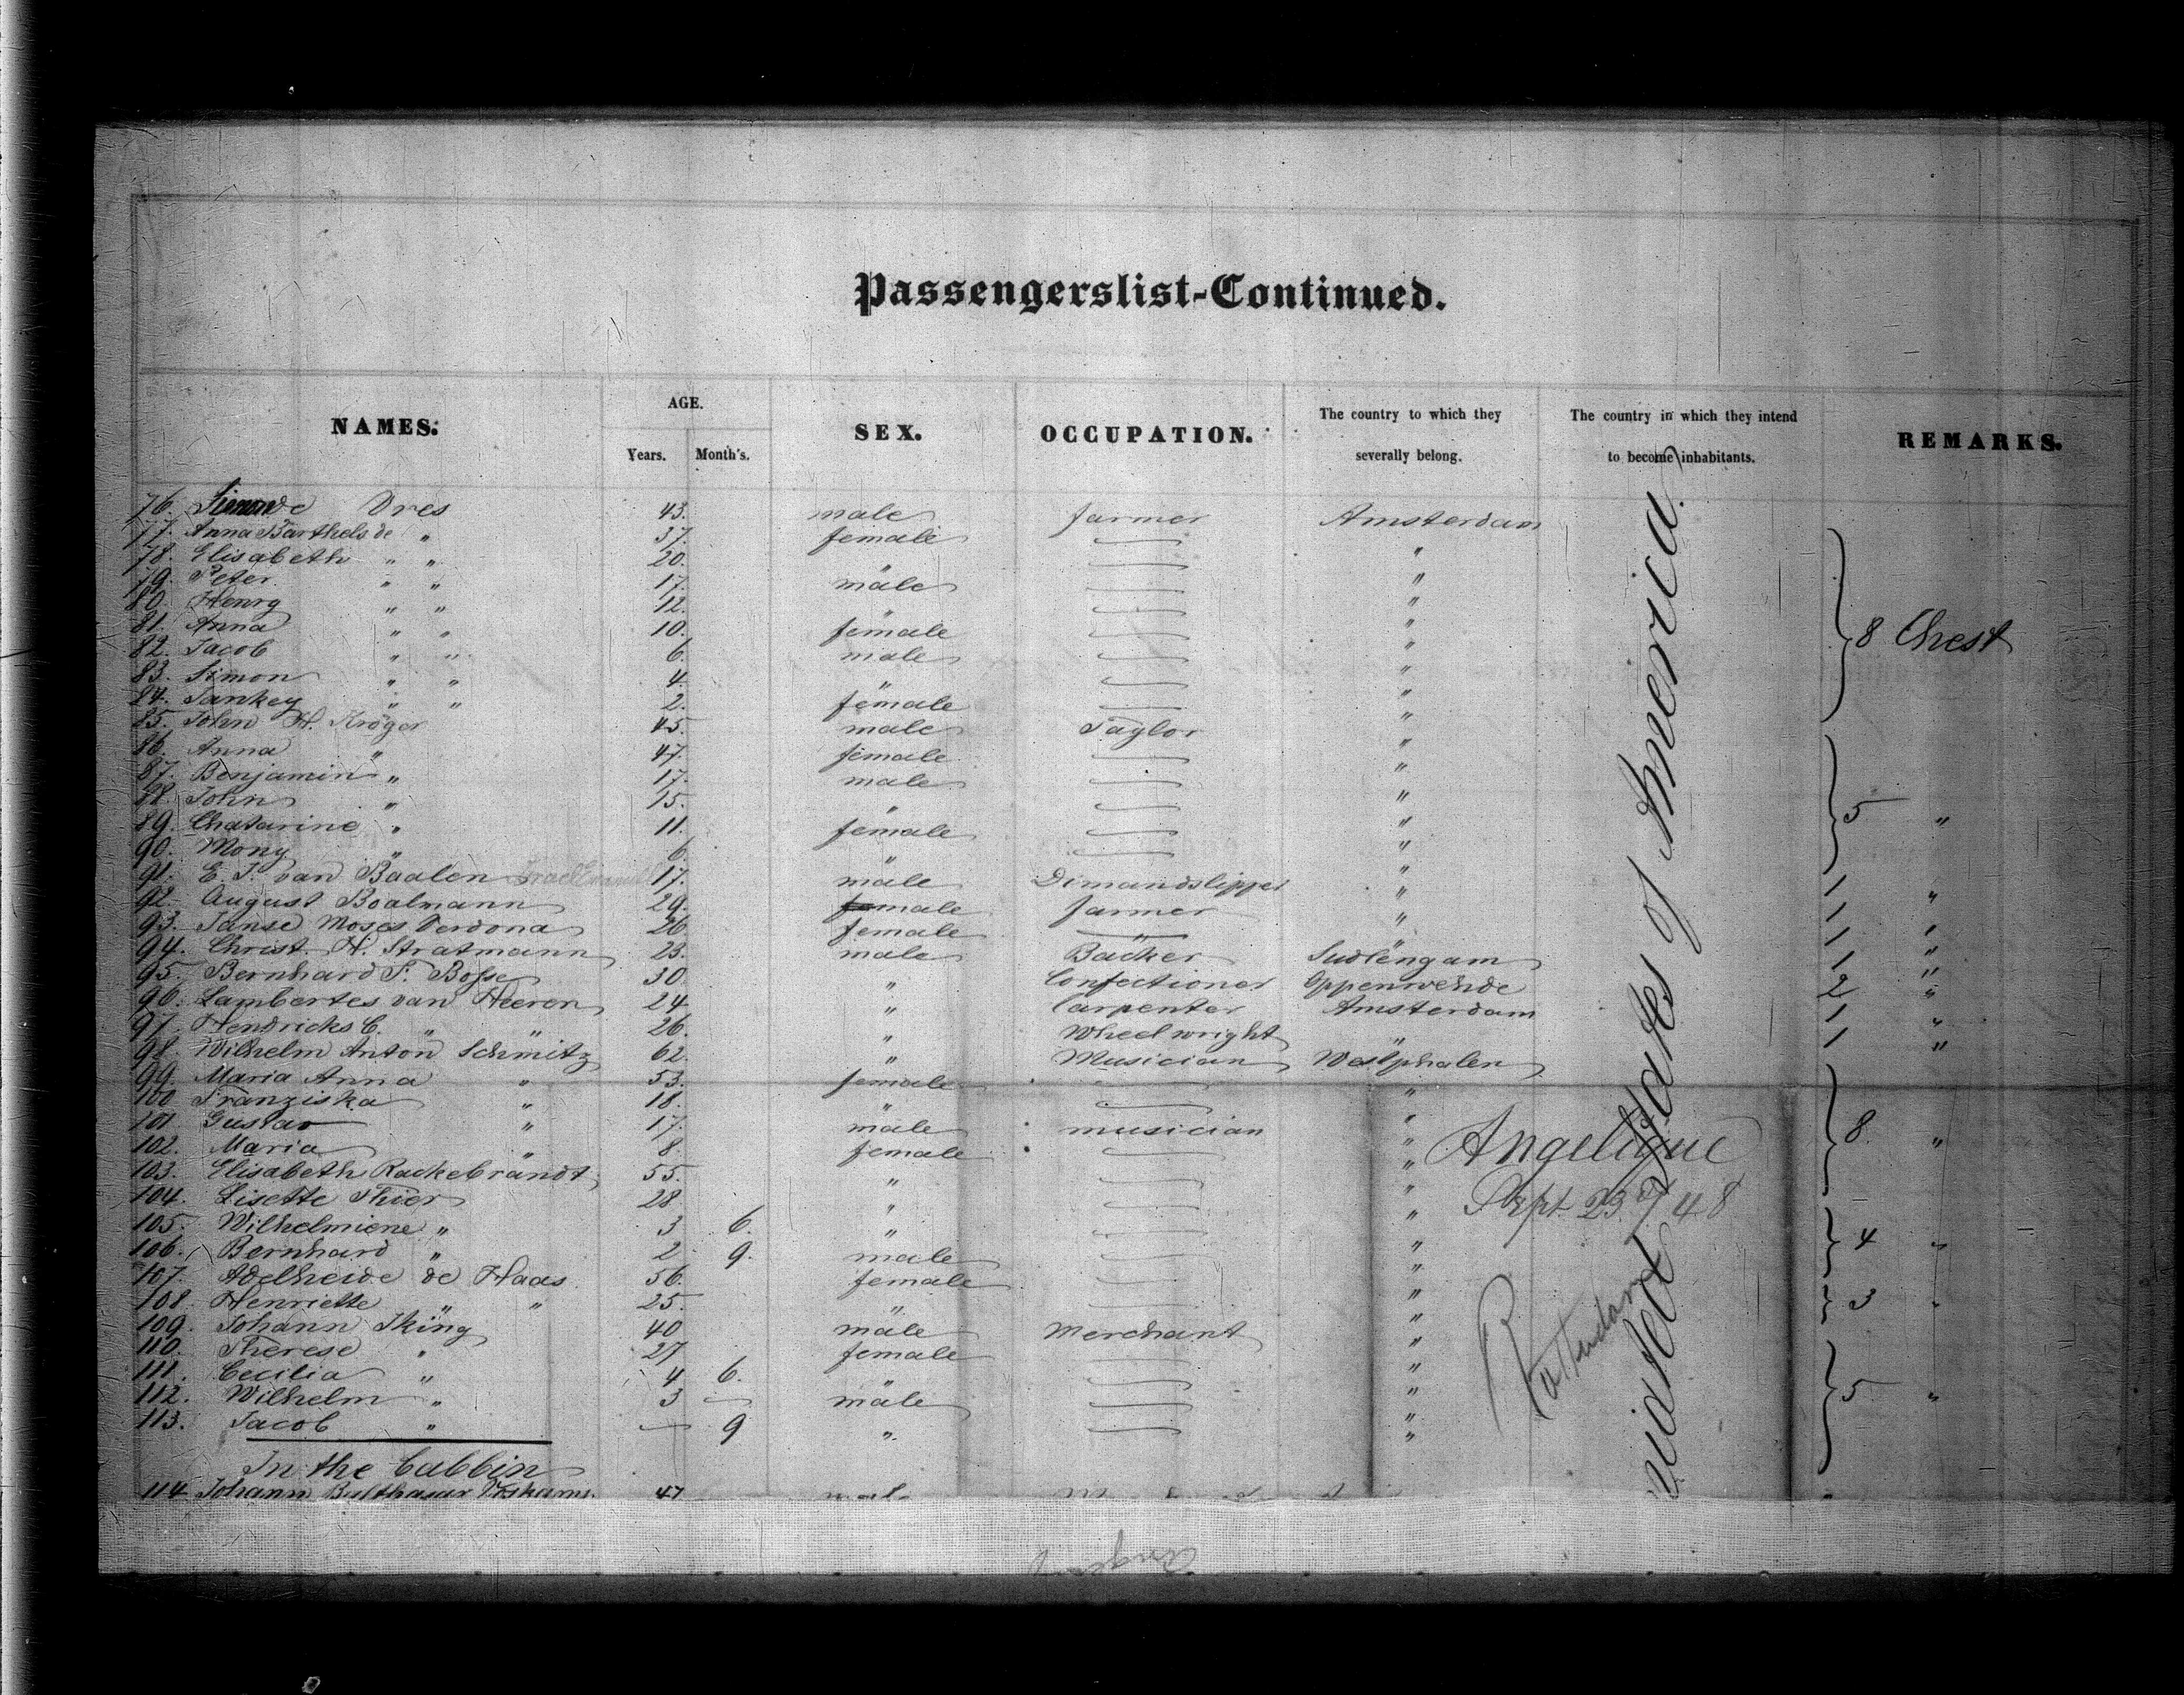 Passengerslist-Continued.
NAMES. AGE. SEX. OCCUPATION. The country to which they severally belong. The country in which they intend to become inhabitants. REMARKS.
Years. Month's.
76. de Vres 43. male farmer Amsterdam
77. Anna Barthels de " 37. female — "
78. Elisabeth " " 20. " — "
79. Peter " " 17. male — "
80. Henry " " 12. " — "
81. Anna " " 10. female — " 8 Chest
82. Jacob " " 6. male — "
83. Simon " " 4. " — "
84. Jankey " " 2. female — "
85. John H. Kröger 45. male Taylor "
86. Anna " 47. female — "
87. Benjamin " 17. male — "
88. John " 15. " — " 5 "
89. Chatarine " 11. female — "
90. Mony " 6. " — "
91. E. J. van Baalen 17. male Dimandslipper " 1 "
92. August Boalmann 29. male farmer " 1 "
93. Janse Moses Verdona 26 female — " 1 "
94. Christ. H. Stratmann 23. male Backer Sudlengam 1 "
95. Bernhard F. Bosse 30 " Confectioner Oppenwehde 2 "
96. Lambertes van Heeren 24 " Carpenter Amsterdam 1 "
97. Hendricks C. " " 26. " Wheelwright " 1 "
98. Wilhelm Anton Schmitz 62. " Musician Westphalen
99. Maria Anna " 53. female — "
100 Franziska " 18. " — "
101 Gustav " 17. male musician " 8. "
102. Maria " 8. female — "
103. Elisabeth Rackebrandt 55. " — "
104. Lisette Thier 28 " — "
105. Wilhelmiene " 3 6. " — " 4 "
106. Bernhard " 2 9. male — "
107. Adelheide de Haas 56. female — "
108. Henriette " " 25. " — " 3 "
109. Johann Iking 40 male Merchant "
110. Therese " 27 female — "
111. Cecilia " 4 6. " — "
112. Wilhelm " 3 — male — " 5 "
113. Jacob " — 9 " — "
In the Cabbin
114. Johann Balthasar 47 male
United States of America.
Angelique
Sept. 23d / 48
Rotterdam